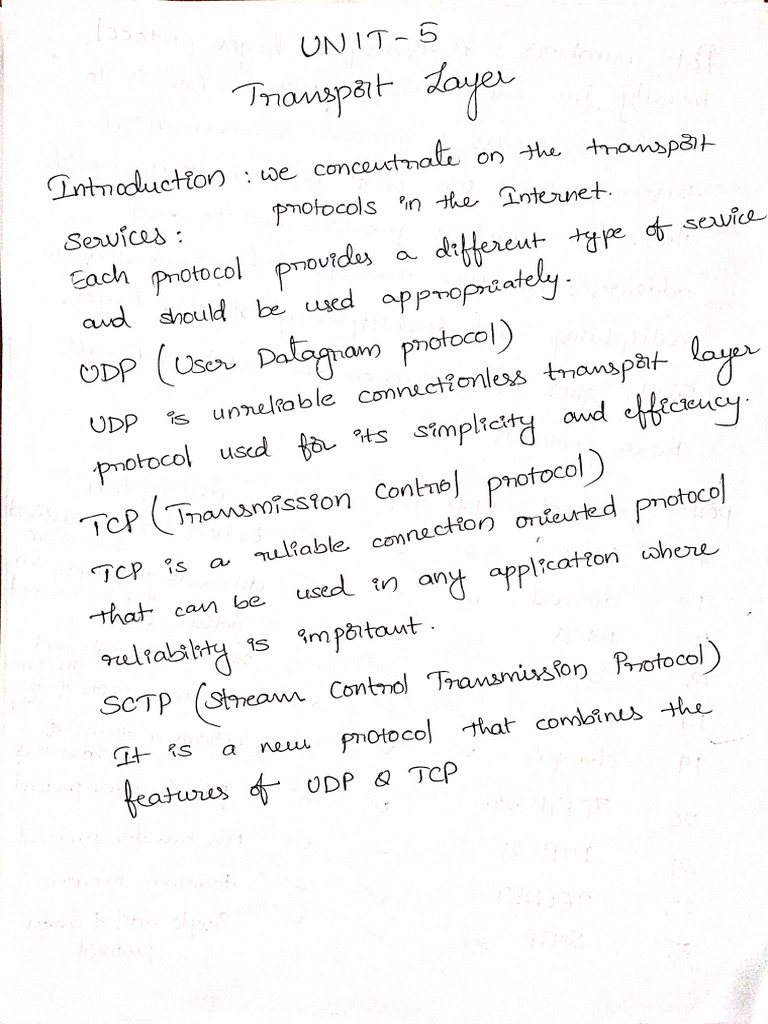 UNIT-5
Transport Layer
Introduction : we concentrate on the transport
protocols in the Internet.
Services :
Each protocol provides a different type of service
and should be used appropriately.
UDP (User Datagram protocol)
UDP is unreliable connectionless transport layer
protocol used for its simplicity and efficiency.
TCP (Transmission Control protocol)
TCP is a reliable connection oriented protocol
that can be used in any application where
reliability is important.
SCTP (Stream Control Transmission Protocol)
It is a new protocol that combines the
features of UDP & TCP